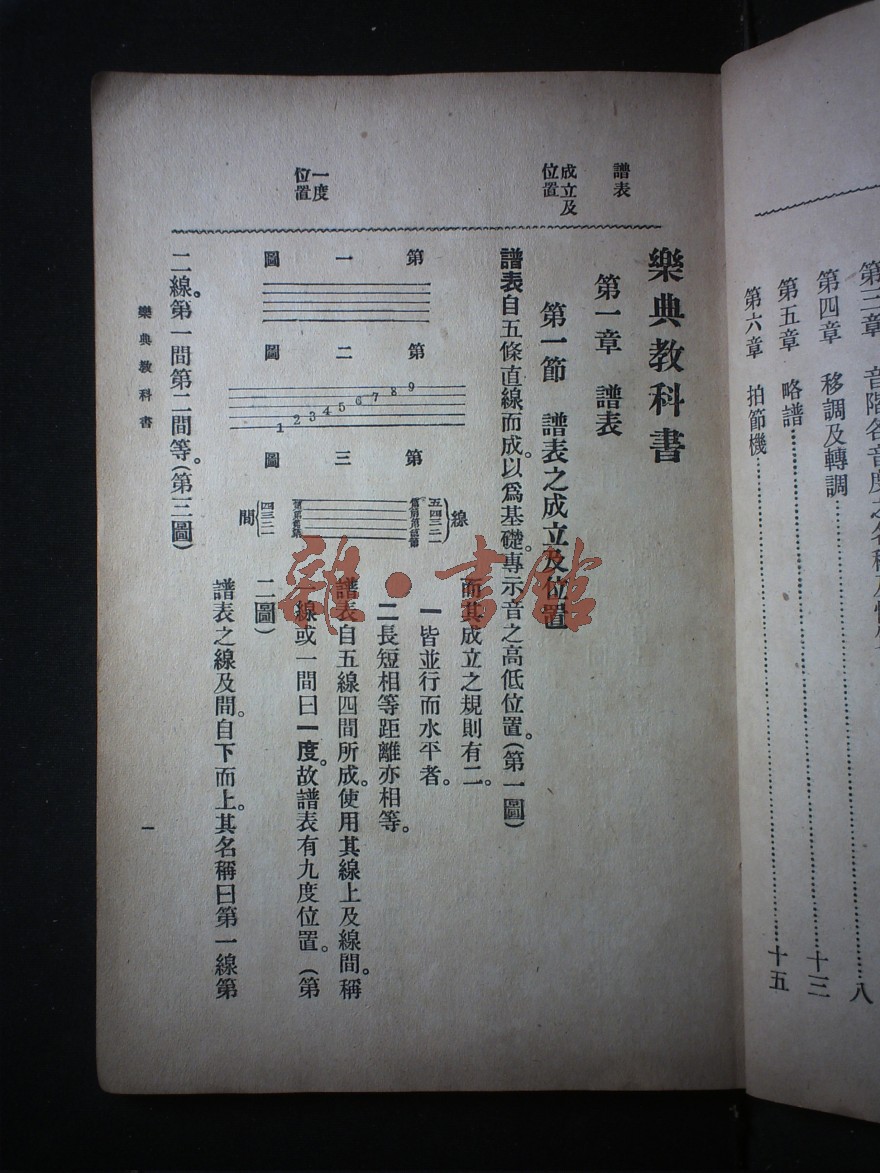 第三章 音階各音度之名稱及
八
第四章 移調及轉調
十三
第五章 略譜
十五
第六章 拍節機
譜表
成立及
位置
一度
位置
樂典教科書
第一章 譜表
第一節 譜表之成立及位置
譜表自五條直線而成。以爲基礎。專示音之高低位置。(第一圖)
而其成立之規則有二。
一皆並行而水平者。
二長短相等距離亦相等。
譜表自五線四間所成。使用其線上及線間。稱
一線或一間曰一度。故譜表有九度位置。(第
二圖)
譜表之線及間。自下而上。其名稱曰第一線第
二線。第一間第二間等。(第三圖)
第一圖
第二圖
1 2 3 4 5 6 7 8 9
第三圖
線
五四三二一
間
四三二一
樂典教科書
一
雜·書館